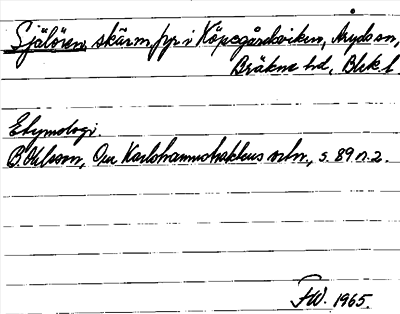 Själören, skärm, fyr i Köpegårdsviken, Åryds sn,
Bräkne hd, Blek. l.
Etymologi.
B. Ohlsson, Om Karlshamnstraktens ortn., s. 89 n. 2.
FW. 1965.